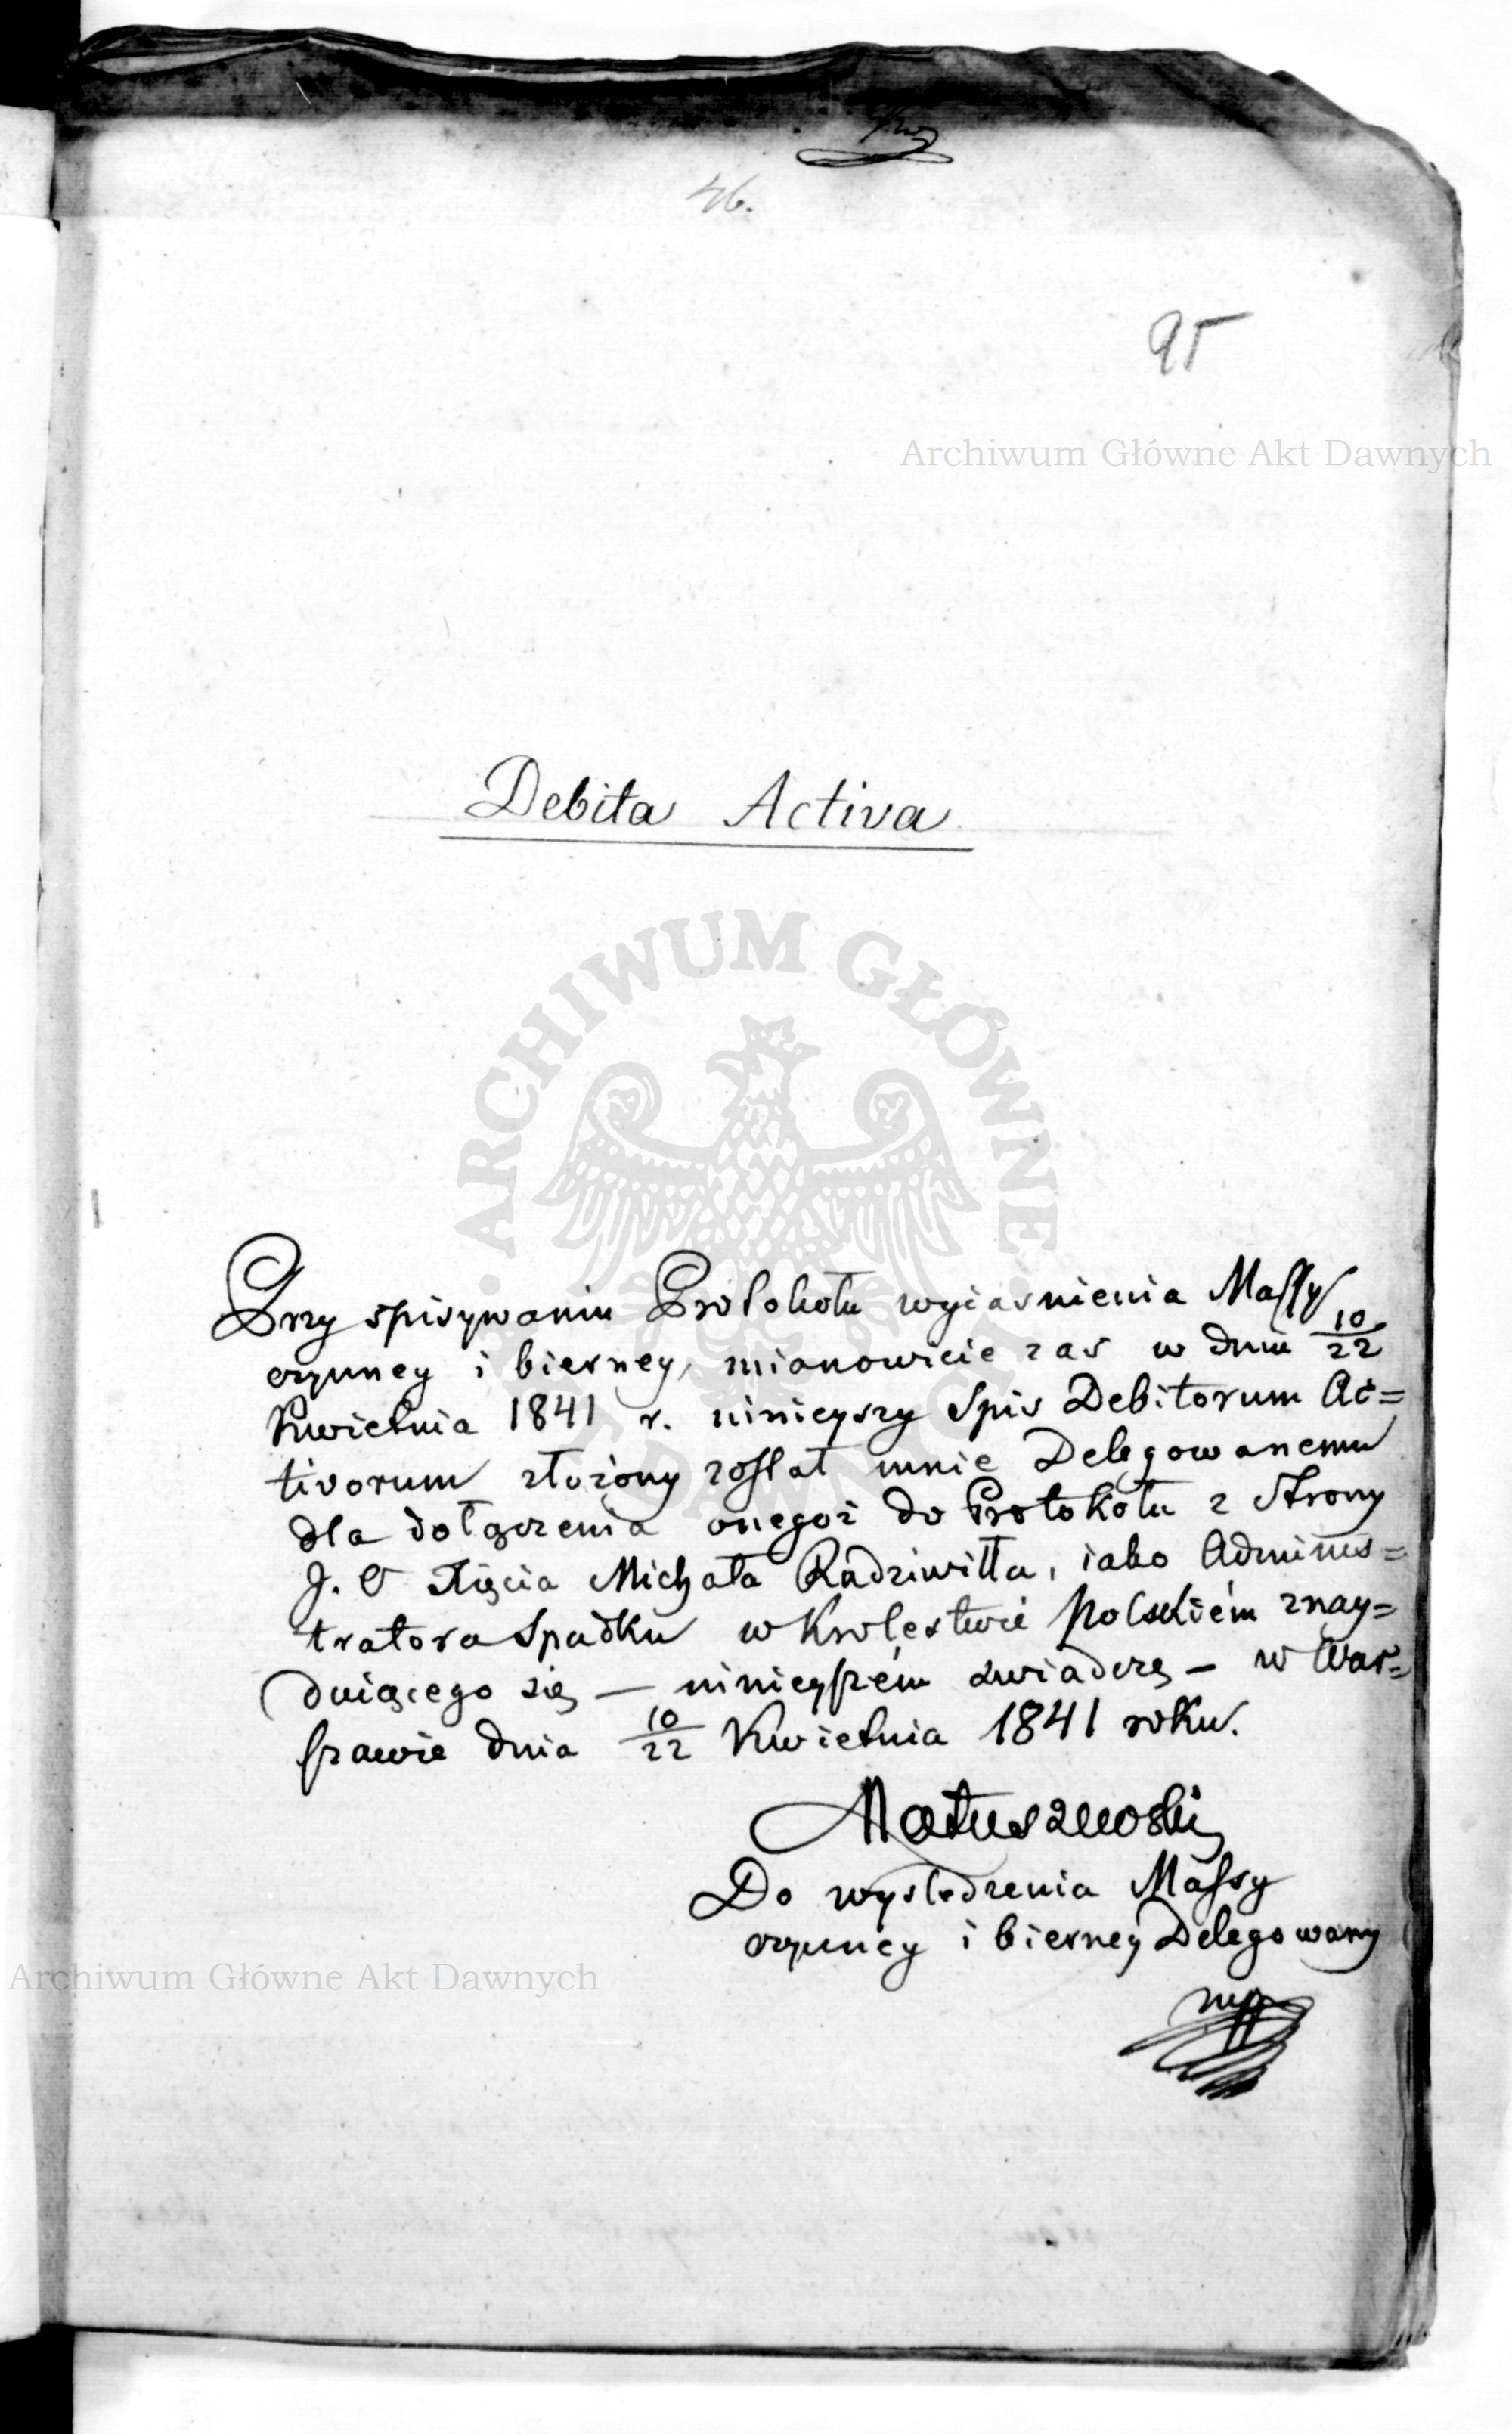 46.
95
Archiwum Główne Akt Dawnych
Debita Activa
ARCHIWUM GŁÓWNE AKT DAWNYCH
Przy spisywaniu Protokołu wyiasnienia Massy
czynney i bierney, mianowicie zas w dniu 10/22
Kwietnia 1841 r. ninieyszy Spis Debitorum Ac=
tivorum złożony został mnie Delegowanemu
dla dołączenia onegoż do Protokołu z Strony
J. O Xięcia Michała Radziwiłła, iako Adminis=
tratora Spadku w Krolestwie Polskiém znay=
duiącego się — ninieyszém zwiadczę — w War=
szawie dnia 10/22 Kwietnia 1841 roku.
Matuszewski
Do wysledzenia Massy
czynney i bierney Delegowany
Archiwum Główne Akt Dawnych
mpp